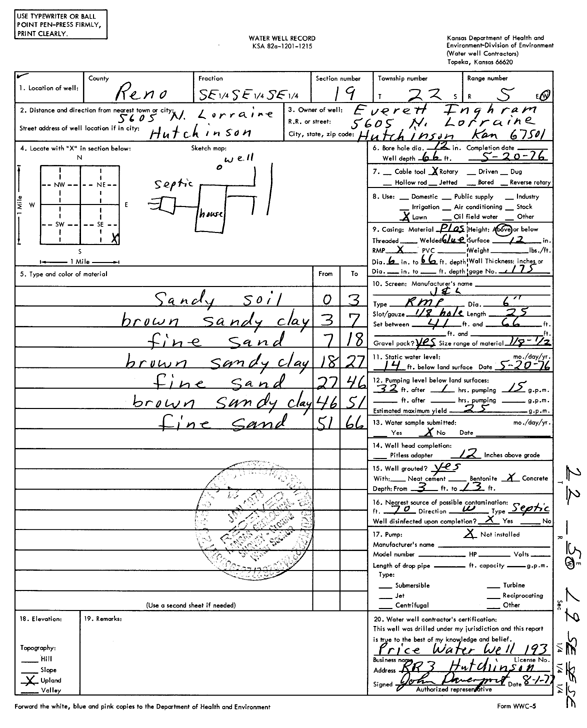 USE TYPEWRITER OR BALL
POINT PEN-PRESS FIRMLY,
PRINT CLEARLY.
WATER WELL RECORD
KSA 82a-1201-1215
Kansas Department of Health and
Environment-Division of Environment
(Water well Contractors)
Topeka, Kansas 66620
1. Location of well:
County
Reno
Fraction
SE 1/4 SE 1/4 SE 1/4
Section number
19
Township number
T 22 S
Range number
R 5 E W
2. Distance and direction from nearest town or city:
5605 N. Lorraine
Street address of well location if in city:
Hutchinson
3. Owner of well: Everett Inghram
R.R. or street: 5605 N. Lorraine
City, state, zip code: Hutchinson Kan 67501
4. Locate with "X" in section below:
N
NW NE
W E
SW SE
X
S
1 Mile
1 Mile
Sketch map:
well
septic
house
5. Type and color of material
From To
Sandy soil 0 3
brown sandy clay 3 7
fine sand 7 18
brown sandy clay 18 27
fine sand 27 46
brown sandy clay 46 51
fine sand 51 66
(Use a second sheet if needed)
6. Bore hole dia. 12 in. Completion date
Well depth 66 ft. 5-20-76
7. Cable tool X Rotary Driven Dug
Hollow rod Jetted Bored Reverse rotary
8. Use: Domestic Public supply Industry
Irrigation Air conditioning Stock
X Lawn Oil field water Other
9. Casing: Material Plas Height: Above or below
Threaded Welded Glue Surface 12 in.
RMP X PVC Weight lbs./ft.
Dia. 6 in. to 66 ft. depth Wall Thickness: inches or
Dia. in. to ft. depth gage No. .175
10. Screen: Manufacturer's name
J&L
Type RMP Dia. 6"
Slot/gauze 1/8 hole Length 25
Set between 41 ft. and 66 ft.
ft. and ft.
Gravel pack? yes Size range of material 1/8-1/2
11. Static water level: mo./day/yr.
14 ft. below land surface Date 5-20-76
12. Pumping level below land surfaces:
32 ft. after 1 hrs. pumping 15 g.p.m.
ft. after hrs. pumping g.p.m.
Estimated maximum yield 25 g.p.m.
13. Water sample submitted: mo./day/yr.
Yes X No Date
14. Well head completion:
Pitless adapter 12 Inches above grade
15. Well grouted? yes
With: Neat cement Bentonite X Concrete
Depth: From 3 ft. to 13 ft.
16. Nearest source of possible contamination:
ft. 70 Direction W Type Septic
Well disinfected upon completion? X Yes No
17. Pump: X Not installed
Manufacturer's name
Model number HP Volts
Length of drop pipe ft. capacity g.p.m.
Type:
Submersible Turbine
Jet Reciprocating
Centrifugal Other
18. Elevation:
Topography:
Hill
Slope
X Upland
Valley
19. Remarks:
20. Water well contractor's certification:
This well was drilled under my jurisdiction and this report
is true to the best of my knowledge and belief.
Price Water Well 193
Business name License No.
Address RR3 Hutchinson
Signed John Davenport Date 8-1-77
Authorized representative
T 22 R 5 E W Sec 19 SE SE SE
1/4 1/4 1/4
Forward the white, blue and pink copies to the Department of Health and Environment
Form WWC-5